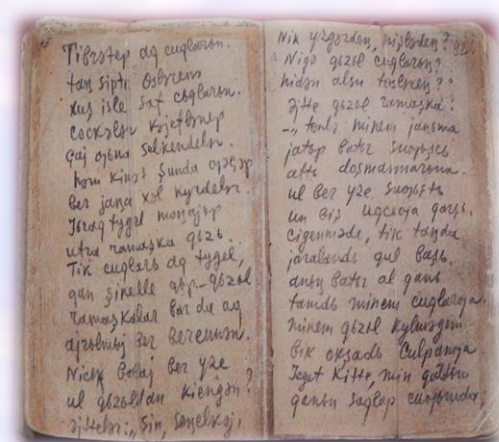 Tibrətep aq cuqlarьn.
taŋ sipte
xuş isle saf cuqlarьn.
Cəckələr kyjeflənep
çaj ojьna selkendelər.
həm şunda
ber jaŋa xəl kyrdelər.
Jьraq tygel moŋajьp
utra ramaşka qьzь.
Tik cuqlarь aq tygel,
qan şikelle qьzьl
ramaşkalar bar da aq
ajrьlmьj ber berennən.
Nicek bolaj ber yze
ul qьzьldan kiengən?
əjttelər: „Sin, seŋelkəj,
Nik yzgərdeŋ, nişlədeŋ?
Nigə qьzьl cuqlarьŋ?
nidən alsu təsləreŋ?"
Əjtte qьzьl ramaşka:
–„ tənlə minem janьma
jatьp batьr suqьşcь
attь doşmannarьna.
ul ber yze suqьştь
un biş qarşь.
cigenmədе, tik taŋda
jaralandь qul başь.
anьŋ batьr al qanь
tamdь minem cuqlarьma.
minem qьzьl kylməgem
bik oxşadь Culpanьma
Jeget kitte, min qaldьm
qanьn saqlap cuqьmda,